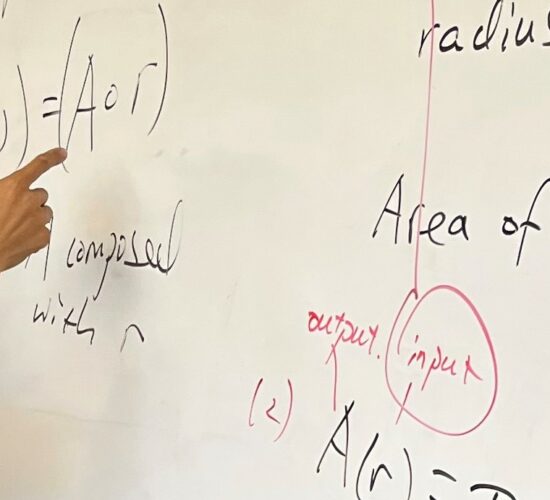 ) = (A∘r)
A composed
with r
radius
Area of
output.
input
(2)
A(r) =